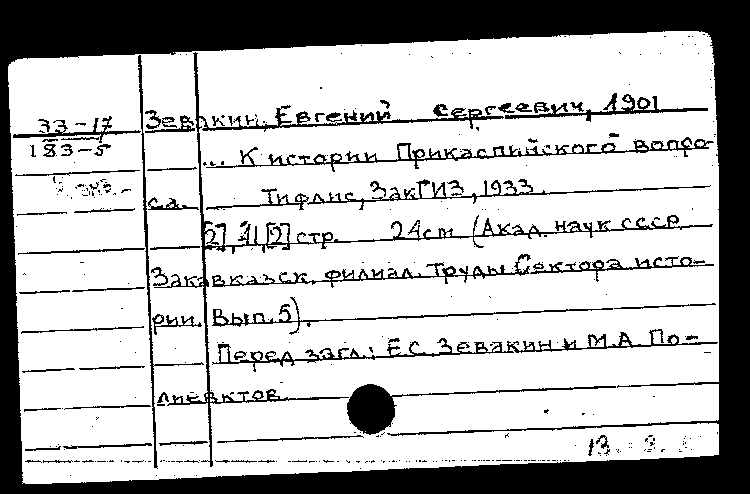 33-17
183-5
Зевакин, Евгений Сергеевич, 1901
... К истории Прикаспийского вопро-
са. Тифлис, ЗакГИЗ, 1933.
[2], 41, [2] стр. 24 cm (Акад. наук СССР.
Закавказск. филиал. Труды Сектора исто-
рии. Вып. 5).
Перед загл.: Е.С. Зевакин и М.А. По-
лиевктов.
13.